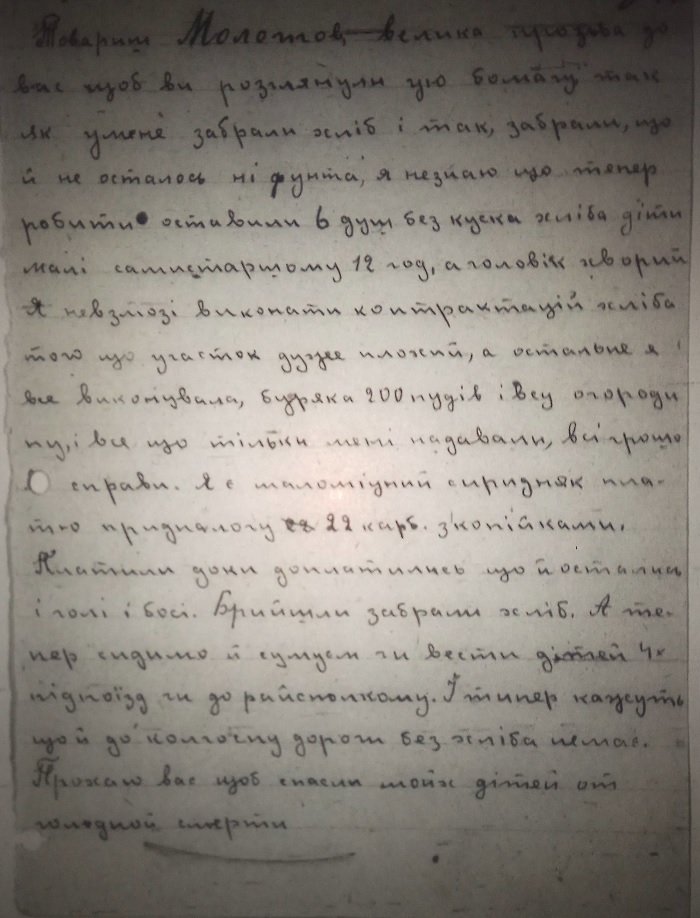 Товариш Молотов, велика прозьба до
вас щоб ви розглянули цю бомагу так
як умене забрали хліб і так, забрали, що
й не осталось ні фунта, я незнаю що тепер
робити оставили 6 душ без куска хліба діти
малі самистаршому 12 год, а головік хворий
Я невзмозі виконати контрактацій хліба
того що участок дуже плохий, а остальне я
все виконувала, буряка 200 пудів і всу огороди
ну, і все що тільки мені надавали, всі грошо
справи. Я є маломіцний сиридняк пла-
тю придналогу 22 карб. з'копійками.
Платили доки доплатились що й остались
і голі і босі. Прийшли забрали хліб. А те-
пер сидимо й сумуєм чи вести дітей
підпоїзд чи до райсполкому. І типер кажуть
що й до колгоспу дороги без хліба немає.
Прохаю вас щоб спасли моїх дітей от
голодной смерти